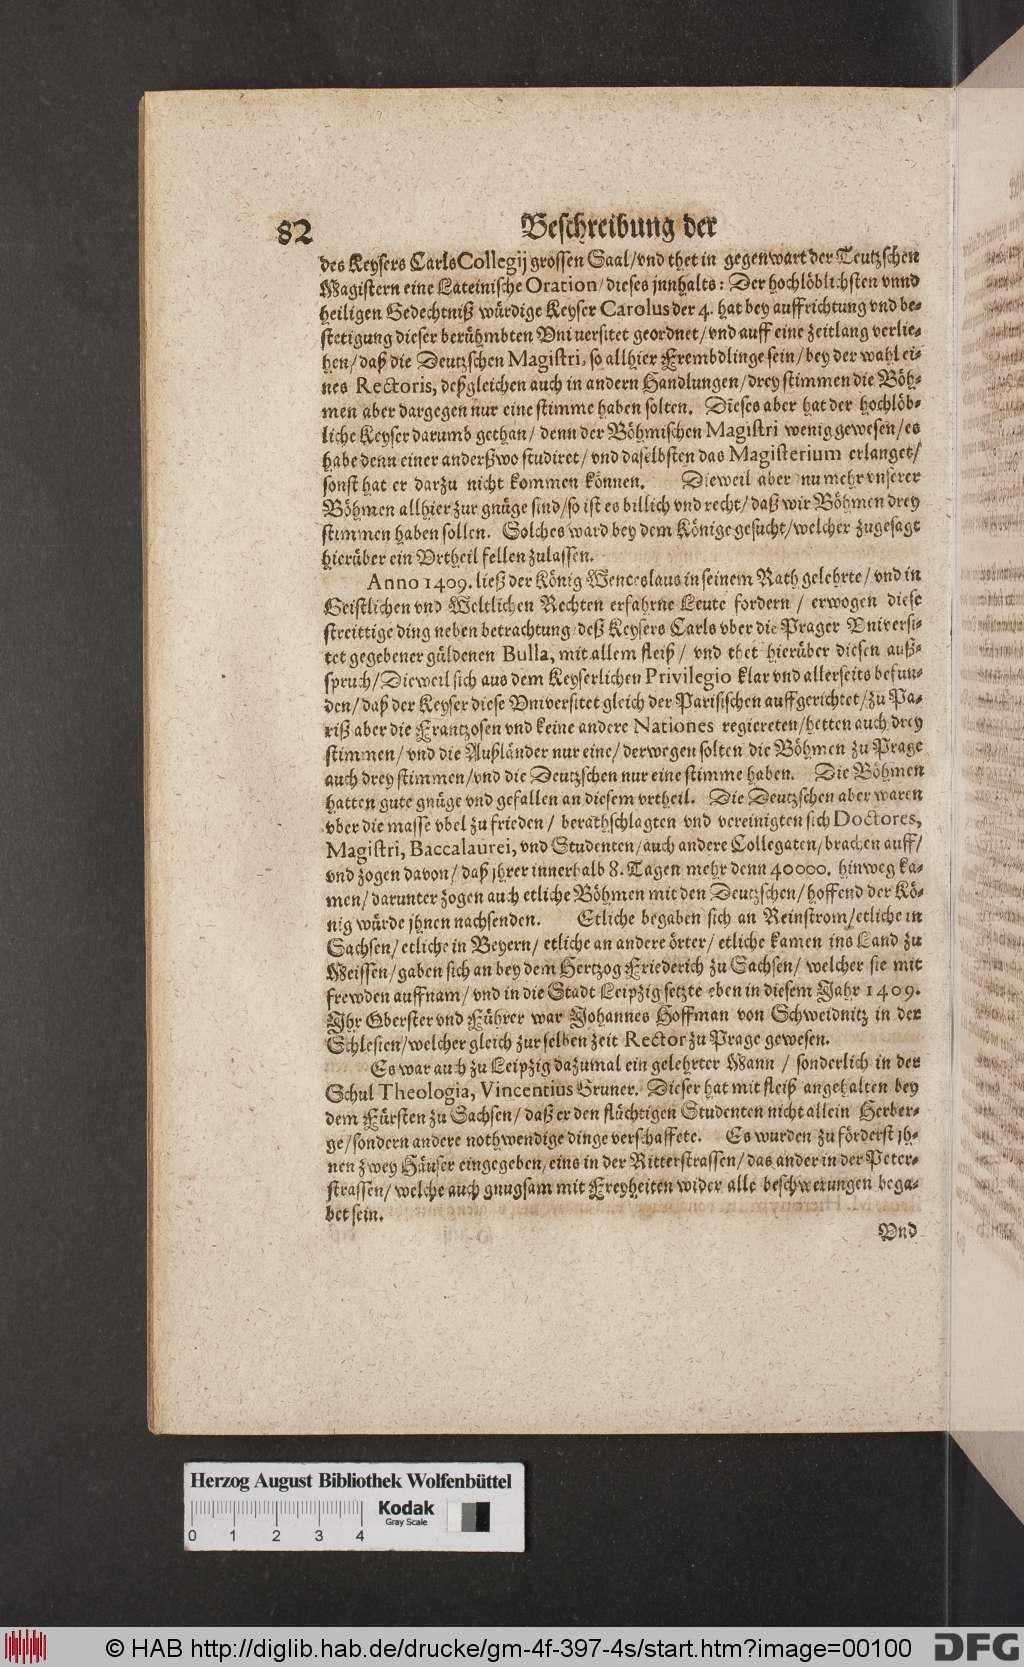 82
Beschreibung der
des Keysers Carls Collegij grossen Saal/vnd thet in gegenwart der Teutzschen
Magistern eine Lateinische Oration/dieses jnnhalts: Der hochlöblichsten vnnd
heiligen Gedechtniß würdige Keyser Carolus der 4. hat bey auffrichtung vnd be-
stetigung dieser berühmbten Vniversitet geordnet/vnd auff eine zeitlang verlie-
hen/daß die Deutzschen Magistri, so allhier Frembdlinge sein/bey der wahl ei-
nes Rectoris, deßgleichen auch in andern Handlungen/drey stimmen die Böh-
men aber dargegen nur eine stimme haben solten. Dieses aber hat der hochlöb-
liche Keyser darumb gethan/ denn der Böhmischen Magistri wenig gewesen/es
habe denn einer anderßwo studiret/vnd daselbsten das Magisterium erlanget/
sonst hat er darzu nicht kommen können. Dieweil aber nu mehr vnserer
Böhmen allhier zur gnüge sind/so ist es billich vnd recht/daß wir Böhmen drey
stimmen haben sollen. Solches ward bey dem Könige gesucht/welcher zugesagt
hierüber ein Vrtheil fellen zulassen.
Anno 1409. ließ der König Wenceslaus in seinem Rath gelehrte/vnd in
Geistlichen vnd Weltlichen Rechten erfahrne Leute fordern/ erwogen diese
streittige ding neben betrachtung deß Keysers Carls vber die Prager Vniversi-
tet gegebener güldenen Bulla, mit allem fleiß/ vnd thet hierüber diesen auß-
spruch/Dieweil sich aus dem Keyserlichen Privilegio klar vnd allerseits befun-
den/daß der Keyser diese Vniversitet gleich der Parisischen auffgerichtet/zu Pa-
riß aber die Frantzosen vnd keine andere Nationes regiereten/hetten auch drey
stimmen/vnd die Außländer nur eine/derwegen solten die Böhmen zu Prage
auch drey stimmen/vnd die Deutzschen nur eine stimme haben. Die Böhmen
hatten gute gnüge vnd gefallen an diesem vrtheil. Die Deutzschen aber waren
vber die masse vbel zu frieden/ berathschlagten vnd vereinigten sich Doctores,
Magistri, Baccalaurei, vnd Studenten/auch andere Collegaten/brachen auff/
vnd zogen davon/daß jhrer innerhalb 8. Tagen mehr denn 40000. hinweg ka-
men/darunter zogen auch etliche Böhmen mit den Deutzschen/hoffend der Kö-
nig würde jhnen nachsenden. Etliche begaben sich an Reinstrom/etliche in
Sachsen/etliche in Beyern/ etliche an andere örter/ etliche kamen ins Land zu
Meissen/gaben sich an bey dem Hertzog Friederich zu Sachsen/ welcher sie mit
frewden auffnam/vnd in die Stadt Leipzig setzte eben in diesem Jahr 1409.
Jhr Oberster vnd Führer war Johannes Hoffman von Schweidnitz in der
Schlesien/welcher gleich zur selben zeit Rector zu Prage gewesen.
Es war auch zu Leipzig dazumal ein gelehrter Mann/ sonderlich in der
Schul Theologia, Vincentius Gruner. Dieser hat mit fleiß angehalten bey
dem Fürsten zu Sachsen/daß er den flüchtigen Studenten nicht allein Herber-
ge/sondern andere nothwendige dinge verschaffete. Es wurden zu förderst jh-
nen zwey Häuser eingegeben/eins in der Ritterstrassen/das ander in der Peter-
strassen/welche auch gnugsam mit Freyheiten wider alle beschwerungen bega-
bet sein.
Vnd
Herzog August Bibliothek Wolfenbüttel
Kodak
Gray Scale
0 1 2 3 4
© HAB http://diglib.hab.de/drucke/gm-4f-397-4s/start.htm?image=00100
DFG